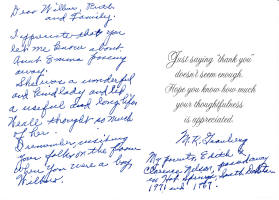 Dear Wilbur, Ruth
and Family:
I appreciate that you
let me know about
Aunt Emma passing
away.
She was a wonderful
and kind lady and led
a useful and long life
We all thought so much
of her.
I remember visiting
your folks on the farm
when you were a boy,
Wilbur.
Just saying "thank you"
doesn't seem enough.
Hope you know how much
your thoughtfulness
is appreciated.
M.R.
My parents, Edith &
Clarence Nelson, passed away
in Hot Springs, South Dakota
1971 and 1967.